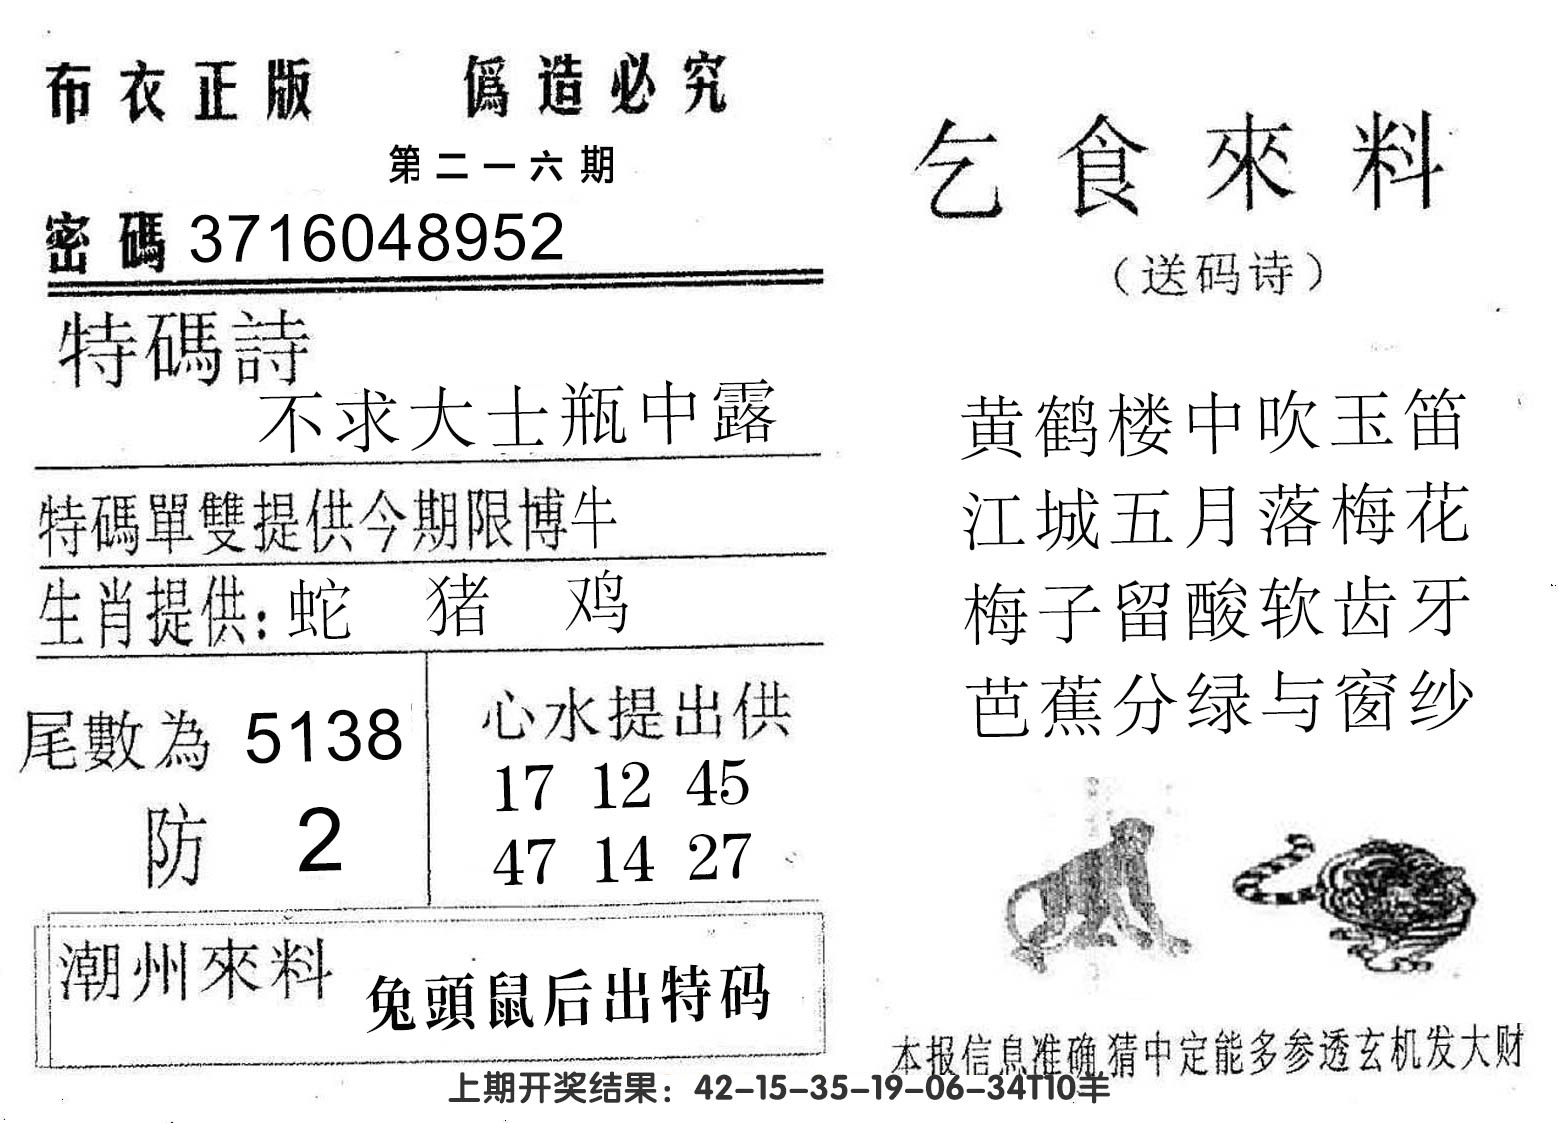 布衣正版 僞造必究
第二一六期
密碼 3716048952
特碼詩
不求大士瓶中露
特碼單雙提供今期限博牛
生肖提供: 蛇 猪 鸡
尾數為 5138
防 2
心水提出供
17 12 45
47 14 27
潮州來料 兔頭鼠后出特码
乞食來料
(送码诗)
黄鹤楼中吹玉笛
江城五月落梅花
梅子留酸软齿牙
芭蕉分绿与窗纱
本报信息准确,猜中定能多参透玄机发大财
上期开奖结果：42-15-35-19-06-34T10羊